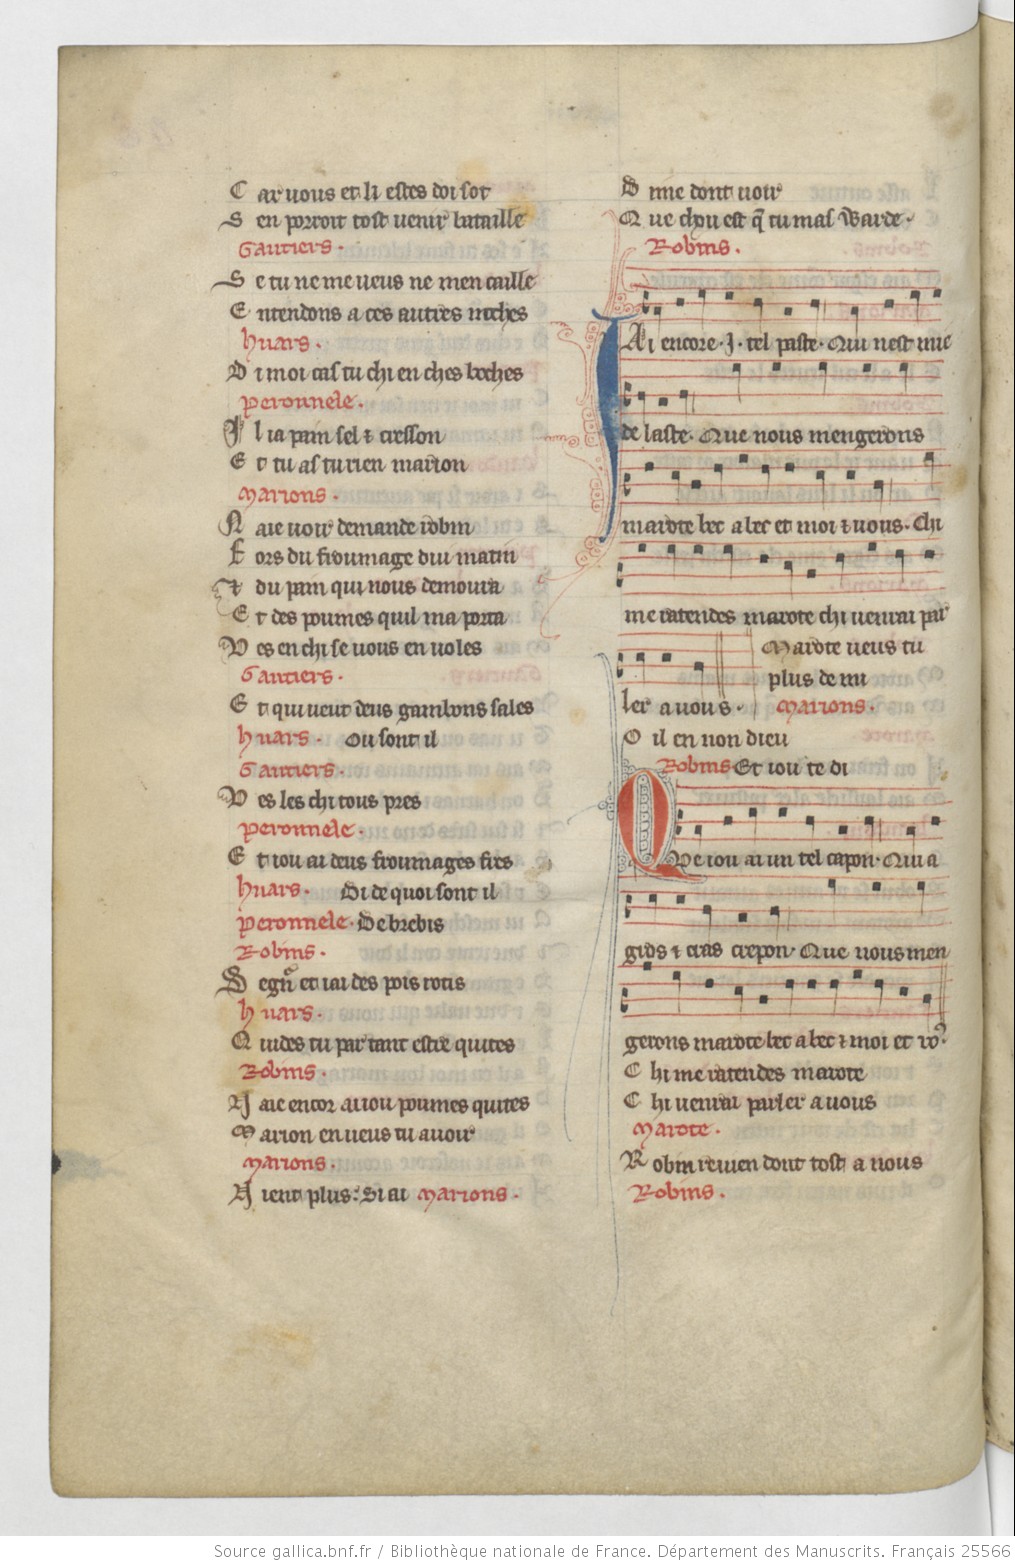 Car vous et li estes doi sot
Sen porroit tost venir bataille
Gautiers.
Se tu ne me veus ne men caille
Entendons a ces autres noches
Huars.
Di moi cas tu chi en ches boches
Peronnele.
Il i a pain sel & cresson
Et tu as tu rien marion
Marions.
Naie voir demande robin
Fors du froumage dui matin
Et du pain qui nous demoura
Et des poumes quil ma porta
Ves en chi se vous en voles
Gautiers.
Et qui veut deus gambons sales
Huars. Ou sont il
Gautiers.
Ves les chi tous pres
Peronnele.
Et iou ai deus froumages fres
Huars. Di de quoi sont il
Peronnele. De brebis
Robins.
Segnr et iai des pois rotis
Huars.
Quides tu par tant estre quites
Robins.
Naie encor aiiou poumes quites
Marion en veus tu avoir
Marions.
Nient plus. Si ai Marions.
Dime dont voir
Que chou est q̃ tu mas Warde.
Robins.
Iai encore .j. tel paste. Qui nest mie
de laste. Que nous mengerons
marote bec a bec et moi & vous. Chi
me ratendes marote chi venrai par
Marote veus tu
plus de mi
ler a vous. Marions.
Oil en non dieu
Robins. Et iou te di
Que iou ai un tel capon. Qui a
gros & cras crepon. Que nous men
gerons marote bec a bec & moi et vo9.
Chi me ratendes marote
Chi venrai parler a vous
Marote.
Robin revien dont tost a nous
Robins.
Source gallica.bnf.fr / Bibliothèque nationale de France. Département des Manuscrits. Français 25566